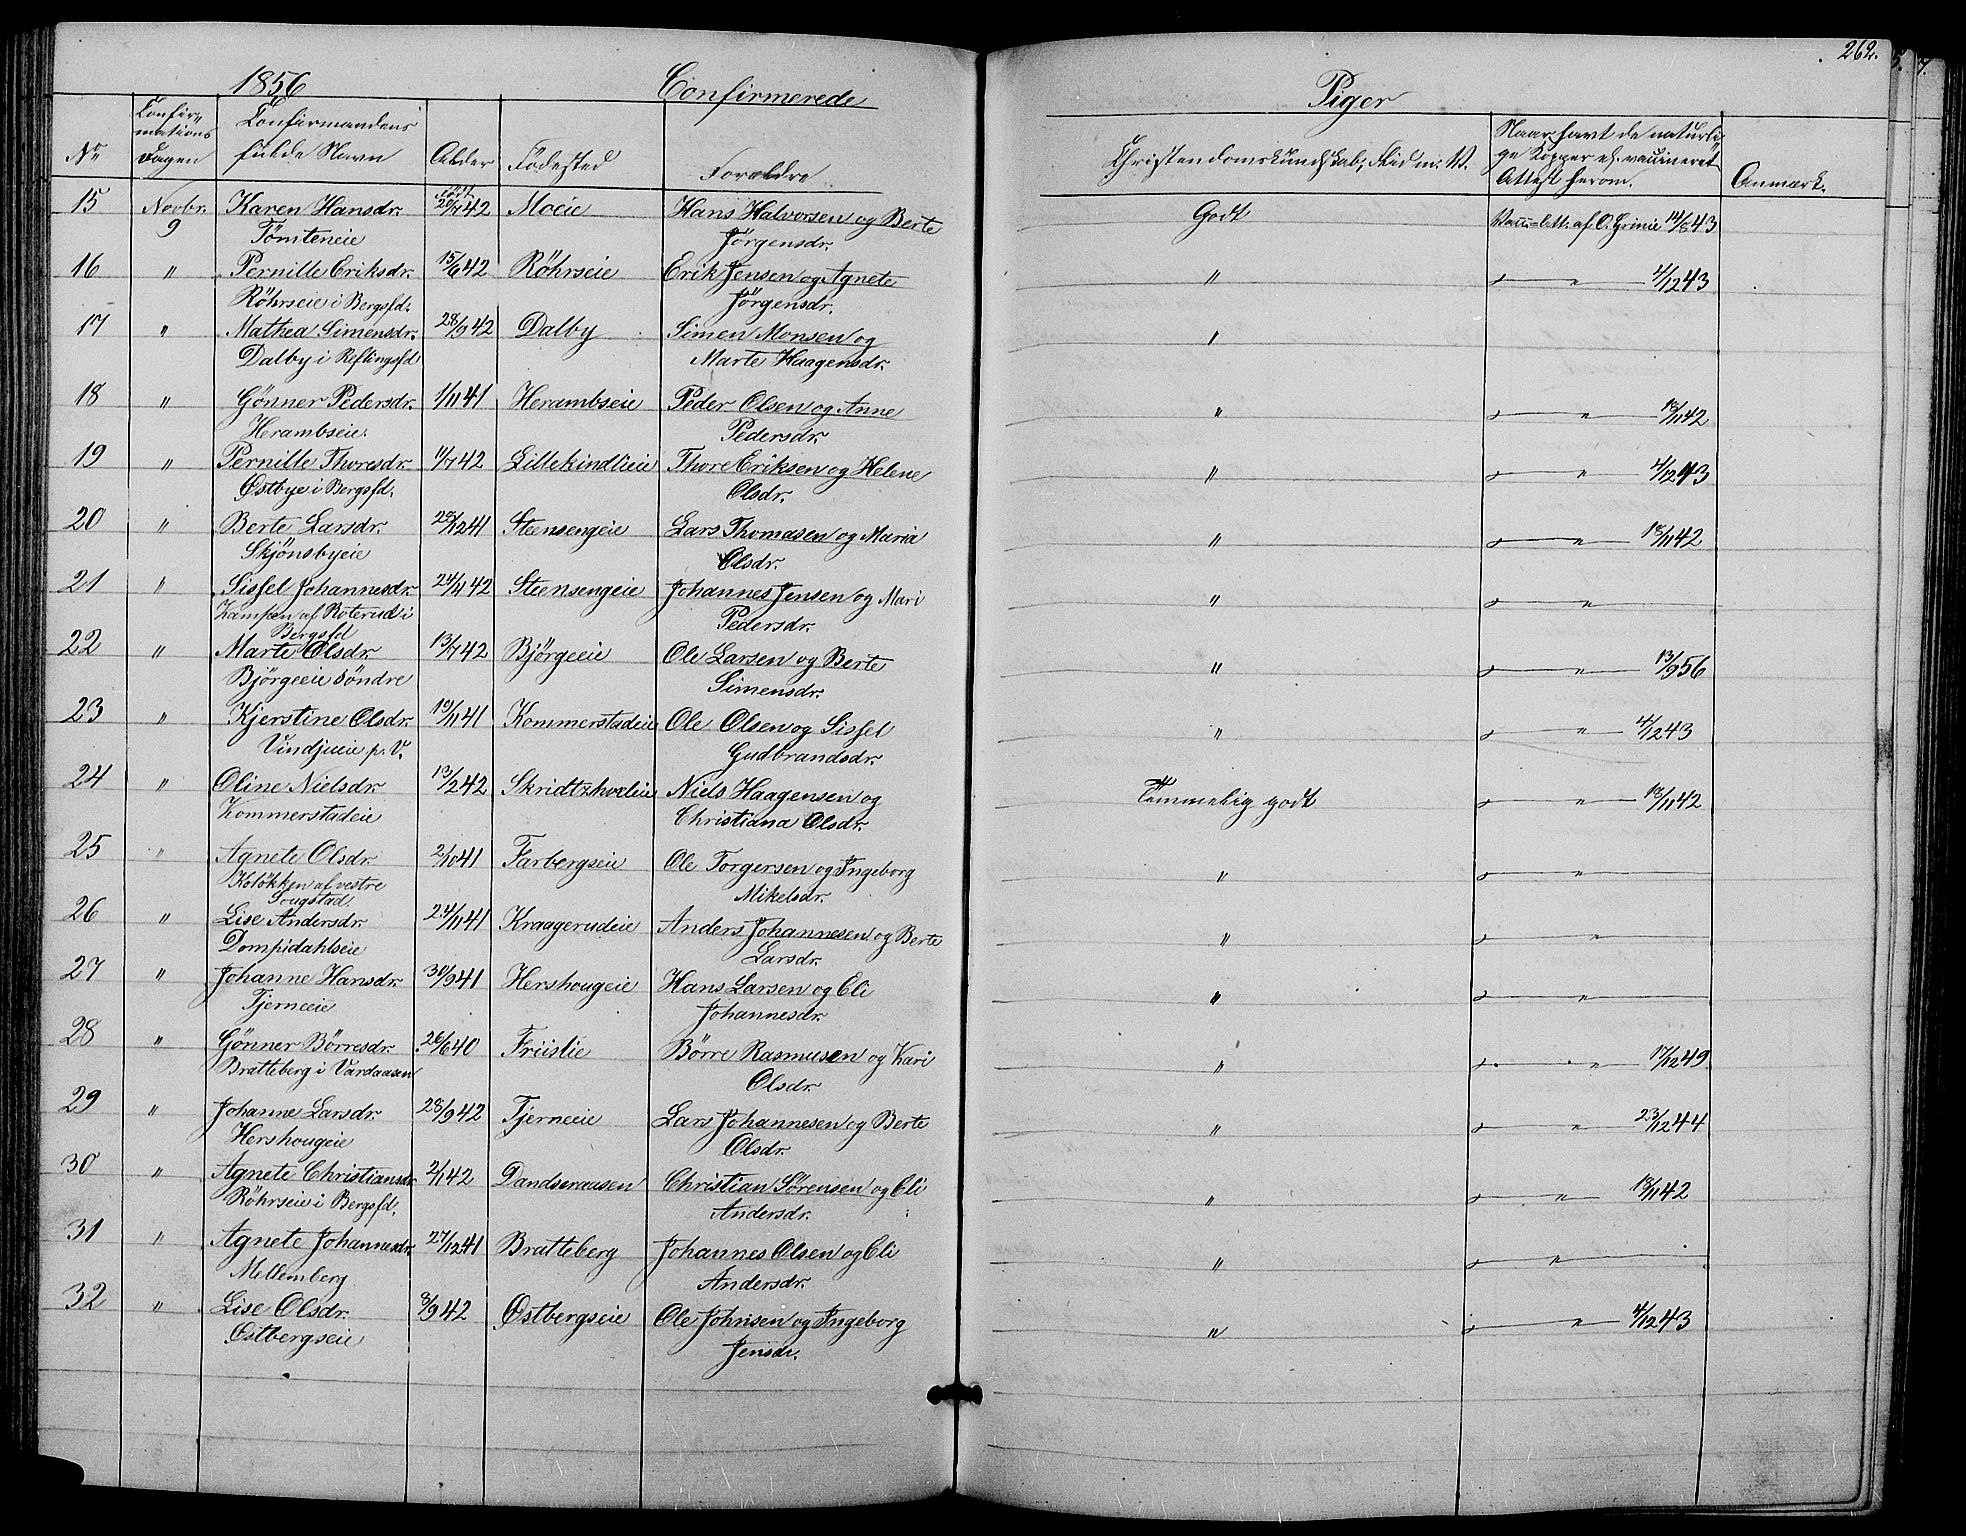 262.
1856 Confirmerede Piger
No
Confir-
mations
Dagen
Confirmandens
fulde Navn
Alder
Födested
Forældre
Christendomskundskab, Flid m. V.
Naar havt de naturli-
ge Kopper el. vaccineret
Attest herom.
Anmærk.
15 Novbr. Karen Hansdr. 20/7 42 Moeie Hans Halvorsen og Berte Godt Vacc.-att. af O. Grimie 14/8 43
9 Tömteneie Jörgensdr.
16 " Pernille Eriksdr. 15/6 42 Röhrseie Erik Jensen og Agnete " " 4/12 43
Röhrseie i Bergsfd. Jörgensdr.
17 " Mathea Simensdr. 28/9 42 Dalby Simen Monsen og "
Dalby i Reflingsfd Marte Haagensdr.
18 " Gönner Pedersdr. 1/11 41 Herambseie Peder Olsen og Anne " " 18/11 42
Herambseie. Pedersdr.
19 " Pernille Thoresdr. 1/7 42 Lillekindlieie Thore Eriksen og Helene " " 4/12 43
Østbye i Bergsfd. Olsdr.
20 " Berte Larsdr. 28/12 41 Steensengeie Lars Thomasen og Maria " " 18/11 42
Skjönsbyeie Olsdr.
21 " Sissel Johannesdr. 24/4 42 Steensengeie Johannes Jensen og Mari " "
Kampen af Roterud i Pedersdr.
Bergsfd
22 " Marte Olsdr. 13/7 42 Björgeeie Ole Larsen og Berte " " 13/9 56
Björgeeie söndre Simensdr.
23 " Kjerstine Olsdr. 19/11 41 Kommerstadeie Ole Olsen og Sissel " " 4/12 43
Vindjueie p. V. Gudbrandsdr.
24 " Oline Nielsdr. 13/2 42 Skridtzhoveie Niels Haagensen og Temmelig godt " 18/11 42
Kommerstadeie Christiana Olsdr.
25 " Agnete Olsdr. 2/10 41 Farbergseie Ole Torgersen og Ingeborg " "
Kolökken af vestre Mikelsdr.
Sougstad.
26 " Lise Andersdr. 24/11 41 Kraagerudeie Anders Johannesen og Berte " "
Dompidahlseie Larsdr.
27 " Johanne Hansdr. 30/9 41 Hershougeie Hans Larsen og Eli " "
Tjerneeie Johannesdr.
28 " Gönner Börresdr. 26/6 40 Friislie Börre Rasmusen og Kari " " 17/12 49
Bratteberg i Vardaasen Olsdr.
29 " Johanne Larsdr. 28/9 42 Tjerneeie Lars Johannesen og Berte " " 23/12 44
Hershougeie Olsdr.
30 " Agnete Christiansdr. 2/1 42 Dandseraasen Christian Sörensen og Eli " " 18/11 42
Röhrseie i Bergsfd. Andersdr.
31 " Agnete Johannesdr. 27/12 41 Bratteberg Johannes Olsen og Eli " "
Mellemberg Andersdr.
32 " Lise Olsdr. 8/9 42 Østbergseie Ole Johnsen og Ingeborg " " 4/12 43
Østbergseie Jensdr.